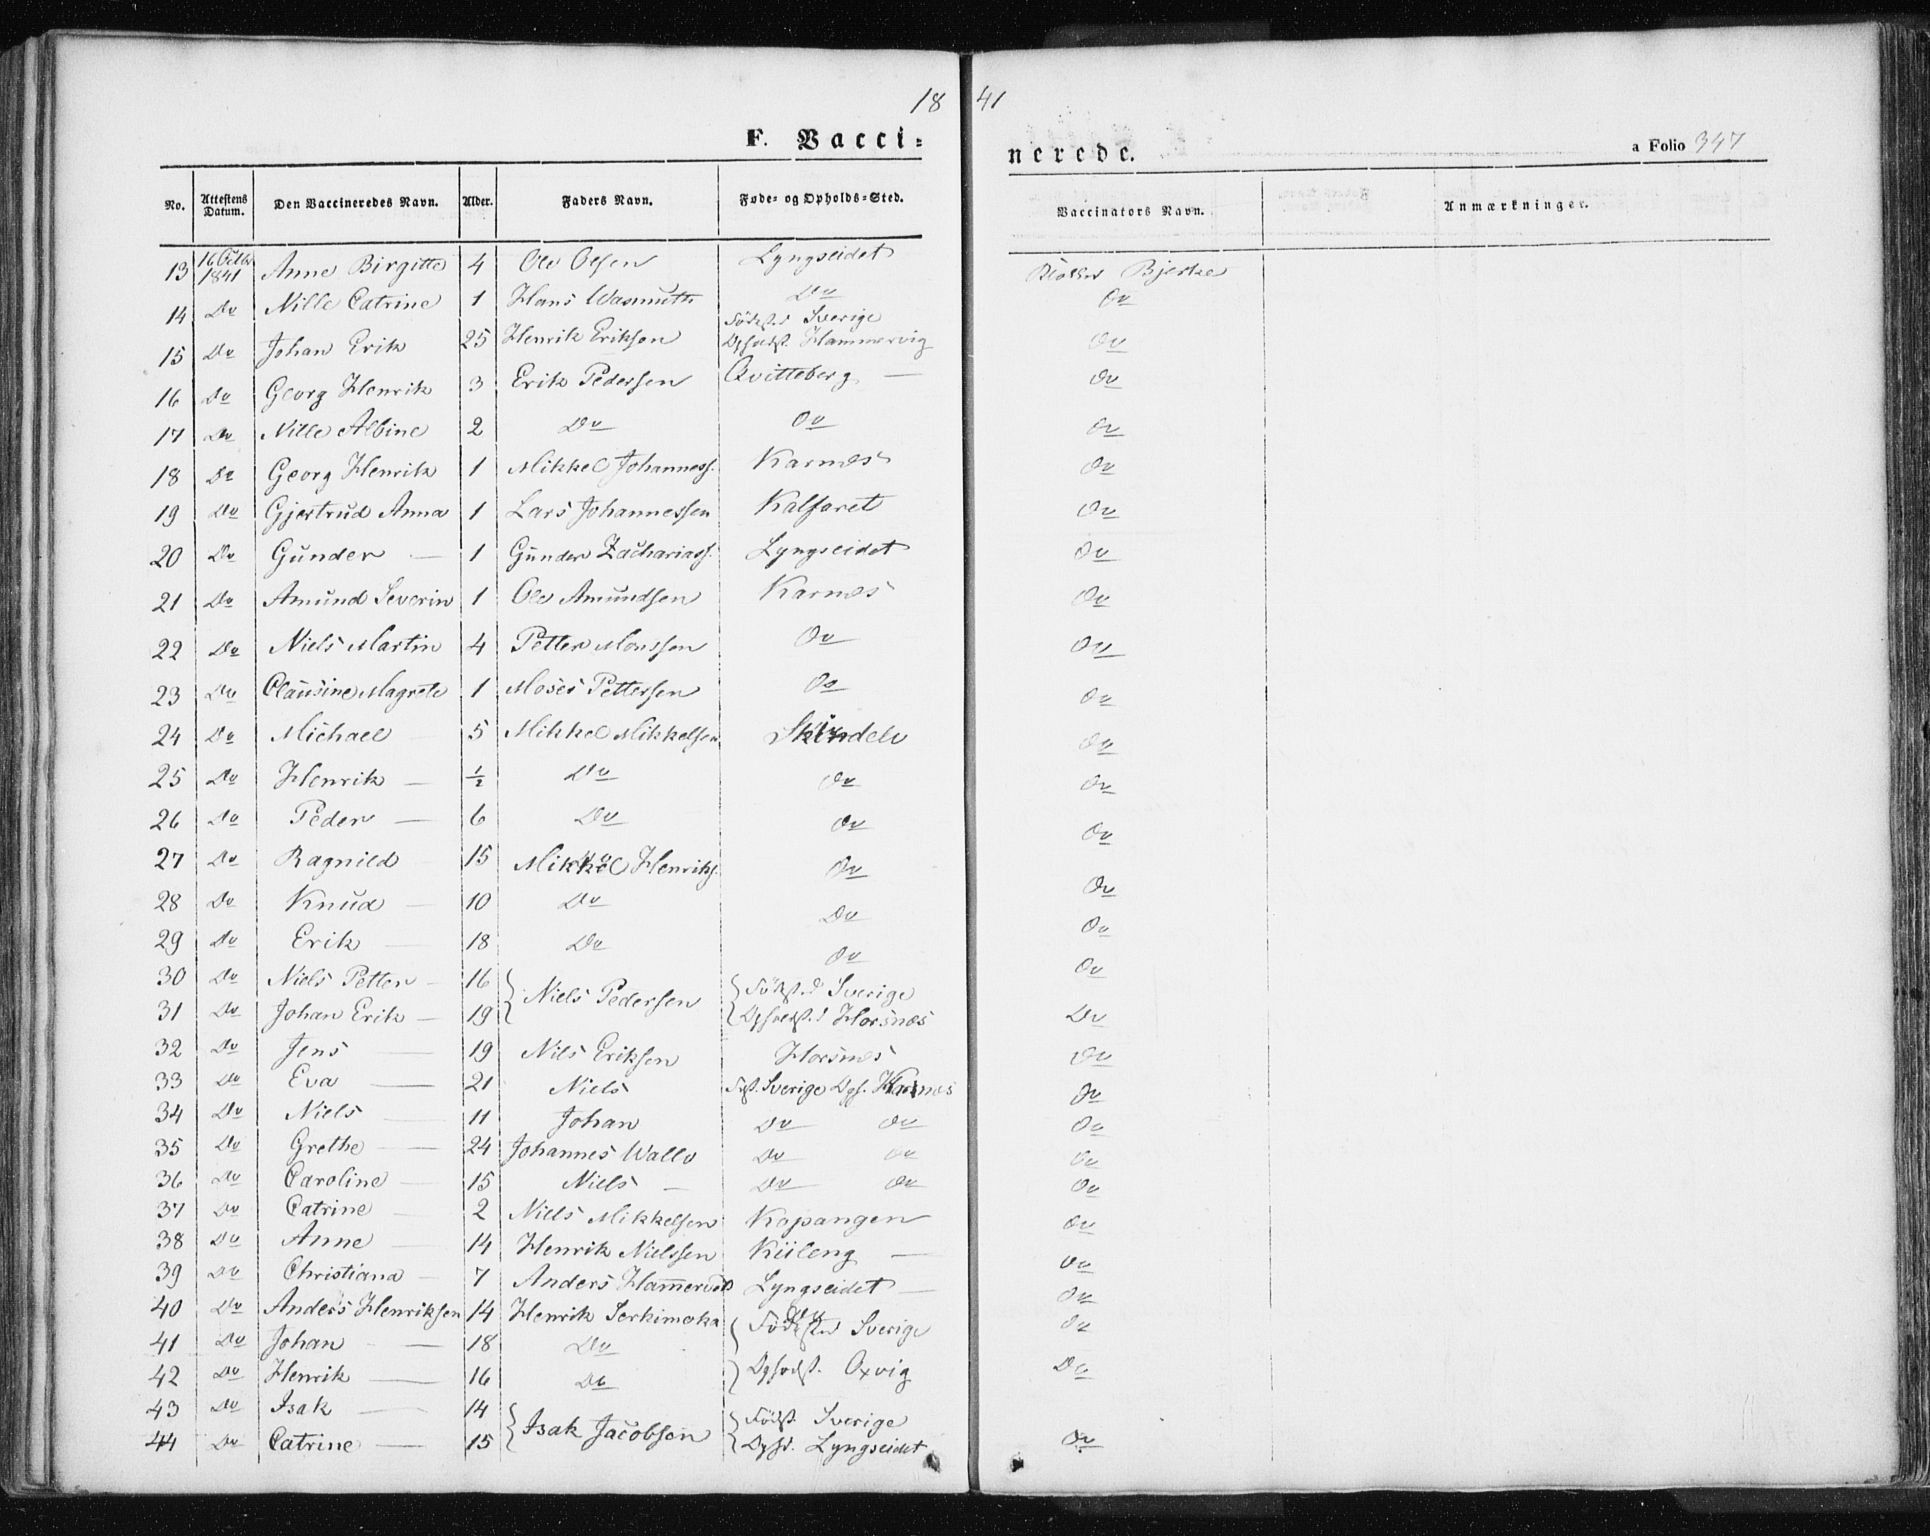 18 41
F. Vacci-
nerede.
a Folio 347
No. Attestens Datum. Den Vaccineredes Navn. Alder. Faders Navn. Føde- og Opholds-Sted. Vaccinators Navn. Anmærkninger.
13 16 Octbr 1841 Anne Birgitte 4 Ole Olsen Lyngseidet Bjerke
14 Do Nille Catrine 1 Hans Wasmuth Do Do
15 Do Johan Erik 25 Henrik Eriksen Fødest. Sverige Opholdst. Hammervig Do
16 Do Georg Henrik 3 Erik Pedersen Qvitteberg — Do
17 Do Nille Albine 2 Do Do Do
18 Do Georg Henrik 1 Mikkel Johanness. Karnæs Do
19 Do Gjertrud Anna 1 Lars Johannessen Kalfaret Do
20 Do Gunder — 1 Gunder Zachariass. Lyngseidet Do
21 Do Amund Severin 1 Ole Amundsen Karnæs Do
22 Do Niels Martin 4 Petter Monssen Do Do
23 Do Clausine Magrete 1 Moses Pettersen Do Do
24 Do Michael — 5 Mikkel Mikkelsen Do
25 Do Henrik — ½ Do Do Do
26 Do Peder — 6 Do Do Do
27 Do Ragnild 15 Mikkel Henriks. Do Do
28 Do Knud — 10 Do Do Do
29 Do Erik — 18 Do Do Do
30 Do Niels Petter — 16 Niels Pedersen Fødst. Sverige Do
31 Do Johan Erik — 19 Opholdst. Horsnæs Do
32 Do Jens — 19 Nils Eriksen Horsnæs Do
33 Do Eva — 21 Niels Fst. Sverige Oph. Karnæs Do
34 Do Niels — 11 Johan Do Do Do
35 Do Grethe — 24 Johannes Wallo Do Do Do
36 Do Caroline — 15 Niels — Do Do Do
37 Do Catrine — 2 Niels Mikkelsen Kopangen Do
38 Do Anne — 14 Henrik Nielssen Kiileng — Do
39 Do Christiana — 7 Anders Lyngseidet — Do
40 Do Anders Henriksen 14 Henrik Fødested Sverige Do
41 Do Johan — 18 Do
42 Do Henrik — 16 Do Opholdst. Oxvig Do
43 Do Isak — 14 Isak Jacobsen Fødst. Sverige
44 Do Catrine — 15 Opho. Lyngseidet Do